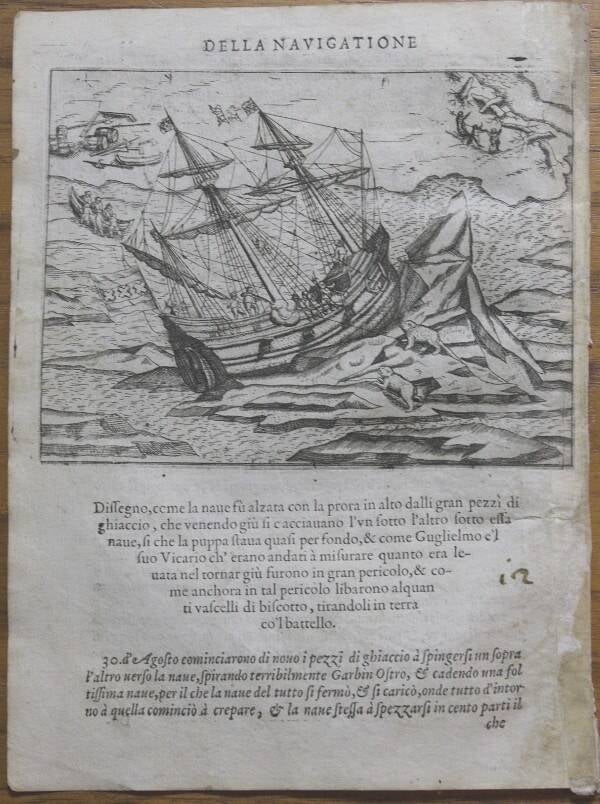 DELLA NAVIGATIONE
Dissegno, come la naue fù alzata con la prora in alto dalli gran pezzi di
ghiaccio, che venendo giù si cacciauano l'vn sotto l'altro sotto essa
naue, si che la puppa staua quasi per fondo, & come Guglielmo e'l
suo Vicario ch'erano andati à misurare quanto era le-
uata nel tornar giù furono in gran pericolo, & co-
me anchora in tal pericolo libarono alquan
ti vascelli di biscotto, tirandoli in terra
co'l battello.
30. d'Agosto cominciarono di nouo i pezzi di ghiaccio à spingersi un sopra
l'altro verso la naue, spirando terribilmente Garbin Ostro, & cadendo una fol
tissima naue, per il che la naue del tutto si fermò, & si caricò, onde tutto d'intor
no à quella cominciò à crepare, & la naue stessa à spezzarsi in cento parti il
che